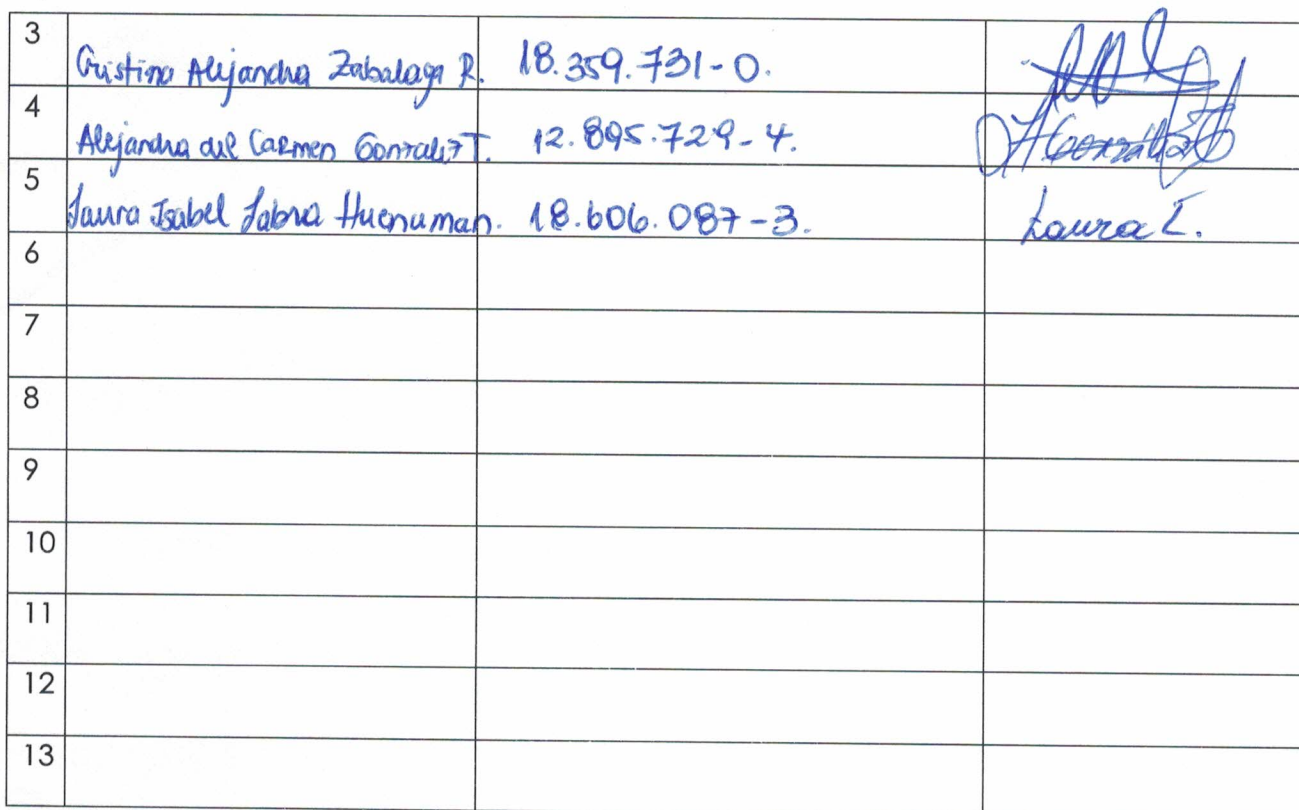 3 Cristina Alejandra Zabalaga R. 18.359.731-0.
4 Alejandra del Carmen Gonzalez T. 12.895.729-4. AGonzález
5 Laura Isabel Labra Huenuman. 18.606.087-3. Laura L.
6
7
8
9
10
11
12
13